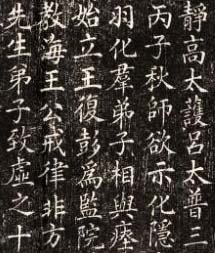 靜高太護呂太普三
丙子秋師欲示化隱
羽化羣弟子相與瘗
始立王復彭爲監院
教海王公戒律非方
先生弟子致虛之十